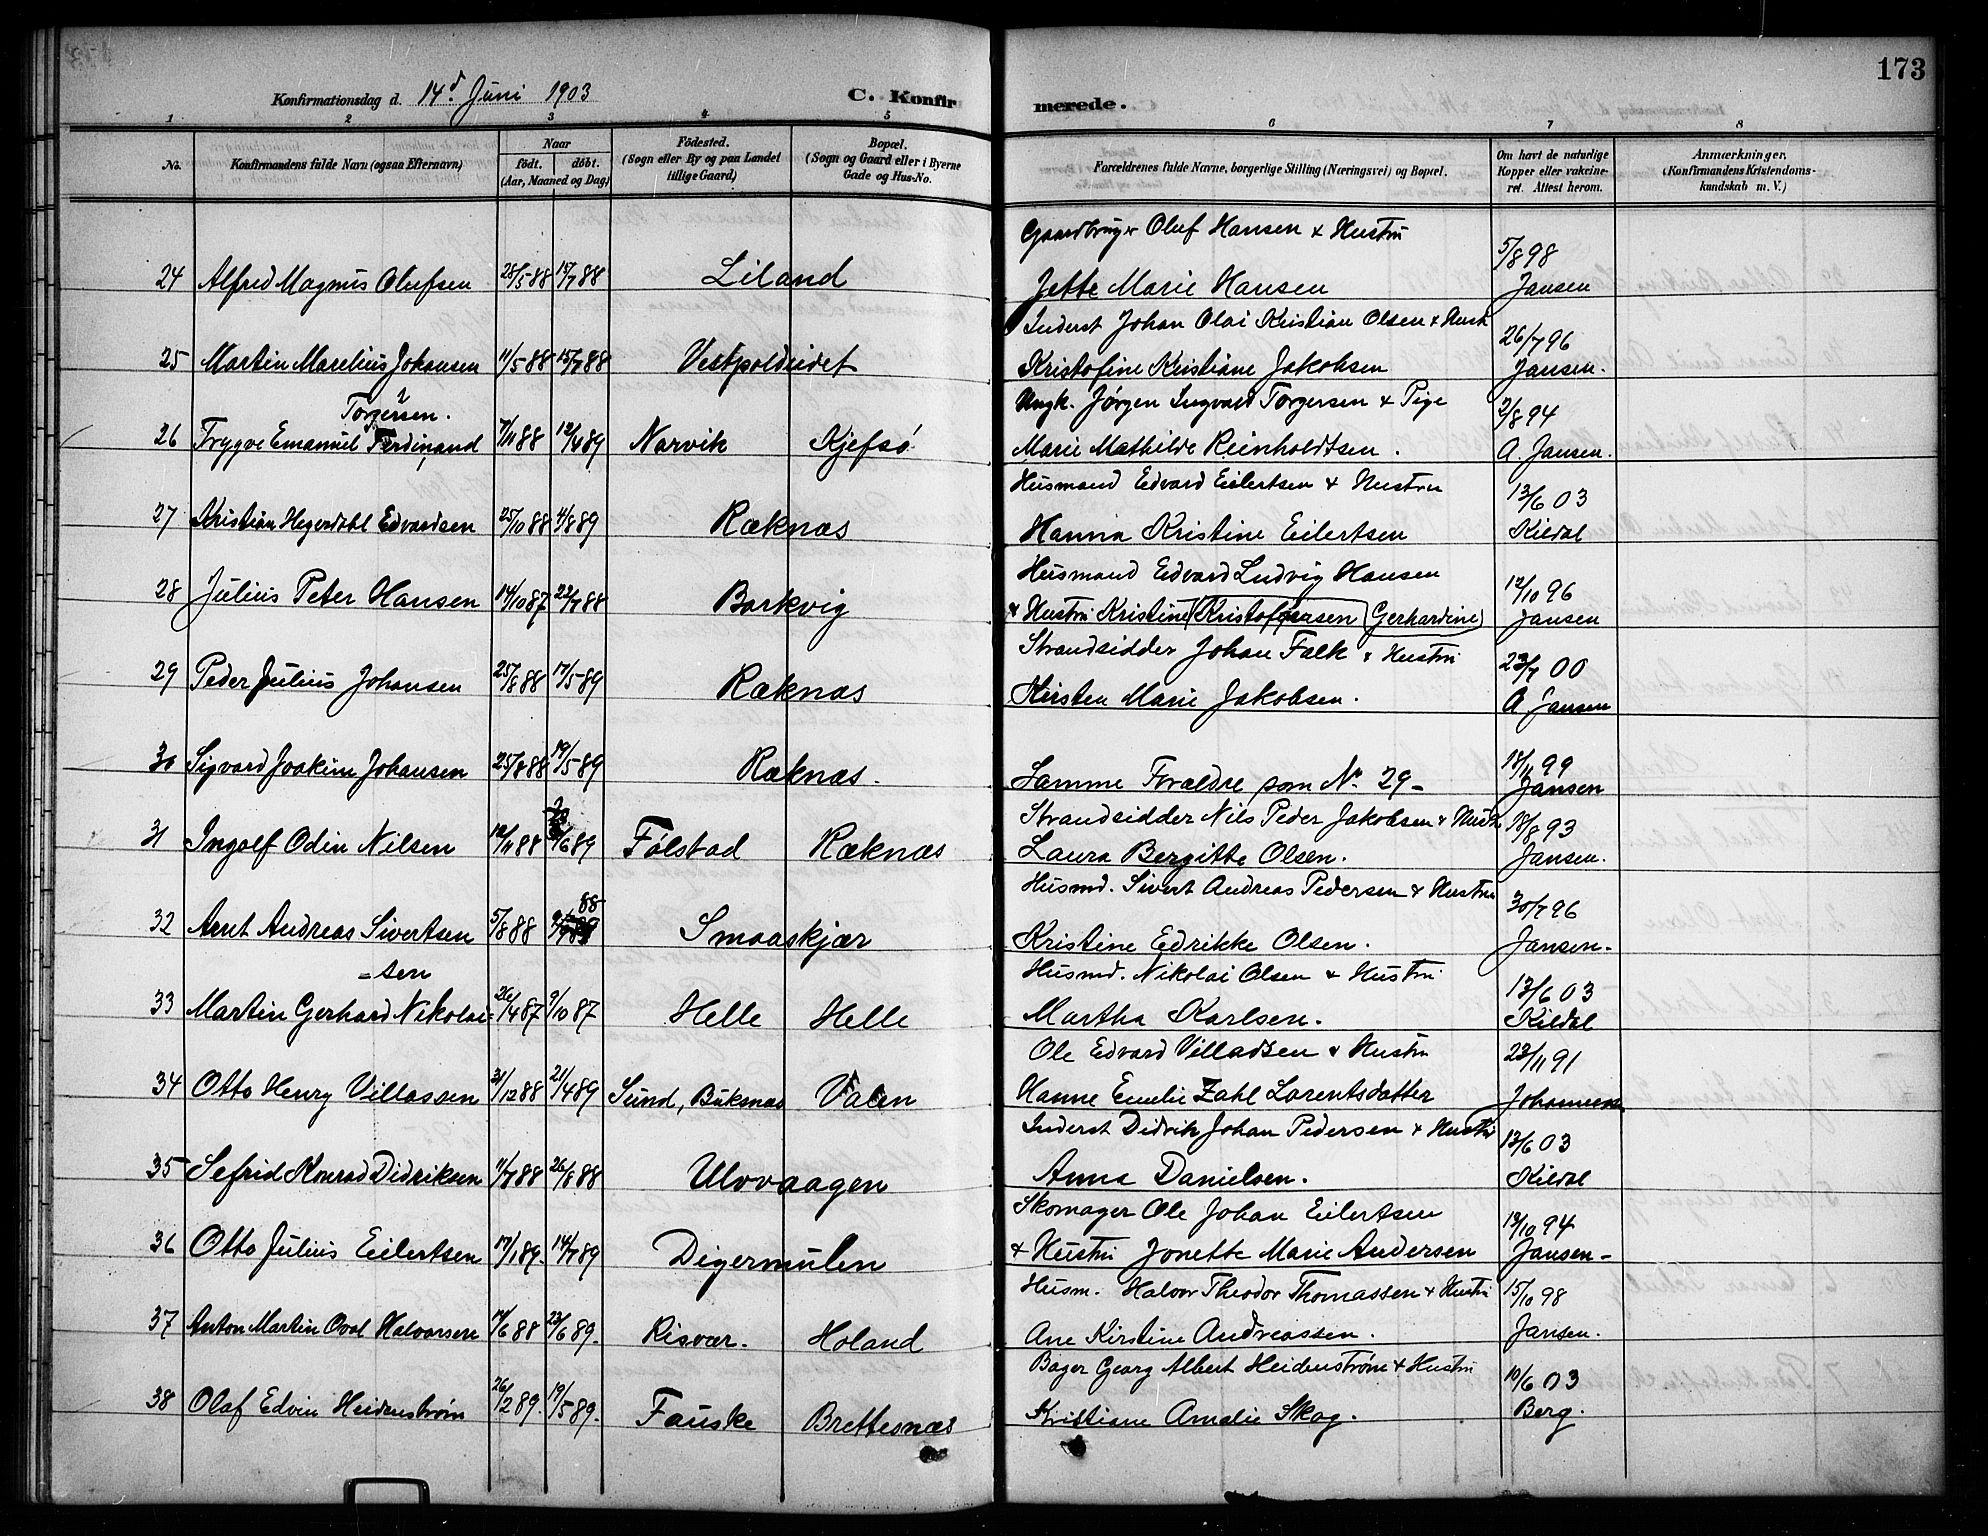 173
Konfirmationsdag d. 14d Juni 1903
C. Konfirmerede.
1 2 3 4 5 6 7 8
No. Konfirmandens fulde Navn (ogsaa Efternavn) Naar født. døbt. (Aar, Maaned og Dag) Fødested. (Sogn eller By og paa Landet tillige Gaard) Bopæl. (Sogn og Gaard eller i Byerne Gade og Hus-No. Forældrenes fulde Navne, borgerlige Stilling (Næringsvei) og Bopæl. Om havt de naturlige Kopper eller vakcineret. Attest herom. Anmærkninger. (Konfirmandens Kristendomskundskab m. V.)
Gaardbruger Oluf Hansen & Hustru 5/8 98
24 Alfred Magnus Olufsen 28/5-88 15/7 88 Liland Jette Marie Hansen Jansen
Inderst Johan Olai Kristian Olsen & Hust. 26/7 96
25 Martin Marelius Johansen 11/5-88 15/7 88 Vestpoldeidet Kristofine Kristiane Jakobsen Jansen.
Torgersen. Ungk. Jørgen Ingvard Torgersen & Pige 2/8 94
26 Trygve Emanuel Ferdinand 7/11 88 12/4 89 Narvik Kjefsø Marie Mathilde Reinholdtsen. A. Jansen.
Husmand Edvard Eilertsen & Hustru 13/6 03
27 Kristian Hegerdahl Edvardsen 25/10 88 4/8 89 Ræknæs Hanna Kristine Eilertsen Kildal
Husmand Edvard Ludvig Hansen 12/10 96
28 Julius Peter Hansen 14/10 87 22/7 88 Borkvig & Hustru Kristine (Kristofersen) (Gerhardine) Jansen
Strandsidder Johan Falk & Hustru 23/7 00
29 Peder Julius Johansen 25/8 88 17/5-89 Ræknæs Kirsten Marie Jakobsen. A Jansen
30 Sigvard Joakim Johansen 25/8 88 19/5-89 Ræknæs. Samme Forældre som No. 29- 18/11 99 Jansen
Strandsidder Nils Peder Jakobsen & Hustr 18/8 93
31 Ingolf Odin Nilsen 12/11 88 /6 89 Følstad Ræknæs Laura Bergitte Olsen. Jansen.
Husmd. Sivert Andreas Pedersen & Hustru 30/7 96
32 Arnt Andreas Sivertsen 5/8 88 88 Smaaskjær Kristine Edrikke Olsen. Jansen-
=sen Husmd. Nikolai Olsen & Hustru 13/6 03
33 Martin Gerhard Nikolai= 26/4 87 9/10 87 Helle Helle Martha Karlsen. Kildal
Ole Edvard Villadsen & Hustru 22/11 91
34 Otto Henry Villassen 31/12 88 21/4 89 Sund, Buksnæs Valen Hanne Emelie Zahl Larentsdatter Johannesen
Inderst Didrik Johan Pedersen & Hustru 13/6 03
35 Sefrid Konrad Didriksen 11/7 88 26/8 88 Ulvvaagen Anna Danielsen. Kildal
Skomager Ole Johan Eilertsen 13/10 94
36 Otto Julius Eilertsen 17/1 89. 14/7 89 Digermulen & Hustru Jonette Marie Andersen Jansen-
Husm. Halvor Theodor Thomassen & Hustru 15/10 98
37 Anton Martin Oval Halvorsen 14/6 88 23/6 89. Risvær. Holand Ane Kirstine Andreassen. Jansen.
Bager Georg Albert Heidenstrøm & Hustru 10/6 03
38 Olaf Edvin Heidenstrøm 26/2 89. 19/5 89. Fauske Brettesnæs Kristiane Amalie Skog. Berg.